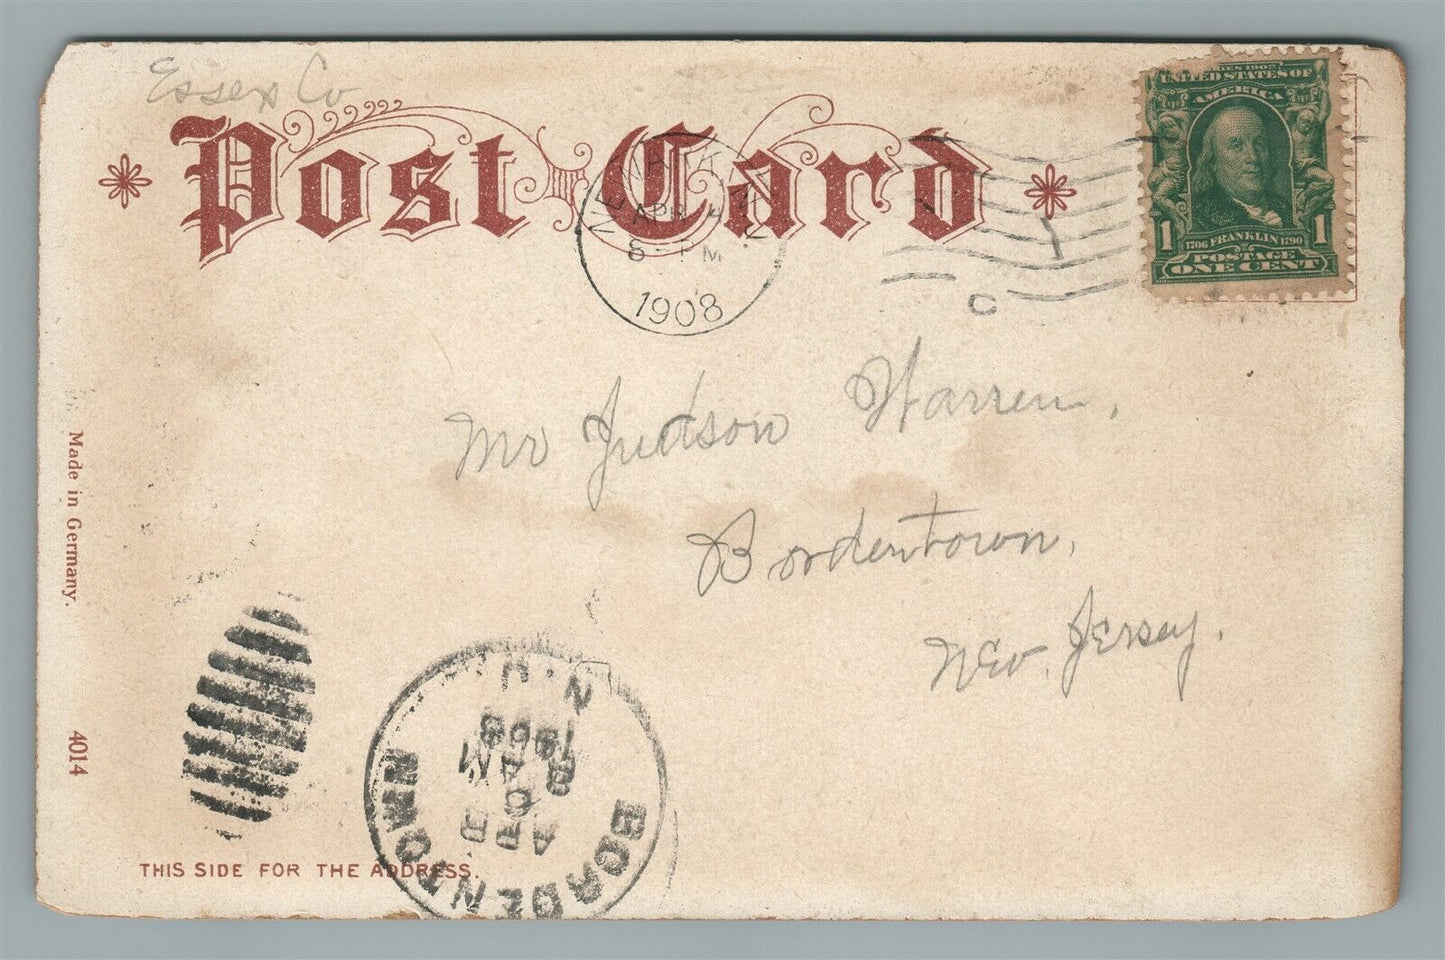 Essex Co
Post Card
NEWARK, N.J.
APR 4
8 - PM
1908
C
SERIES 1902
UNITED STATES OF
AMERICA
1706 FRANKLIN 1790
1 1
POSTAGE
ONE CENT
Mr Judson Warren,
Bordentown,
New Jersey.
Made in Germany.
4014
BORDENTOWN
N.J.
APR
AM
1908
THIS SIDE FOR THE ADDRESS.